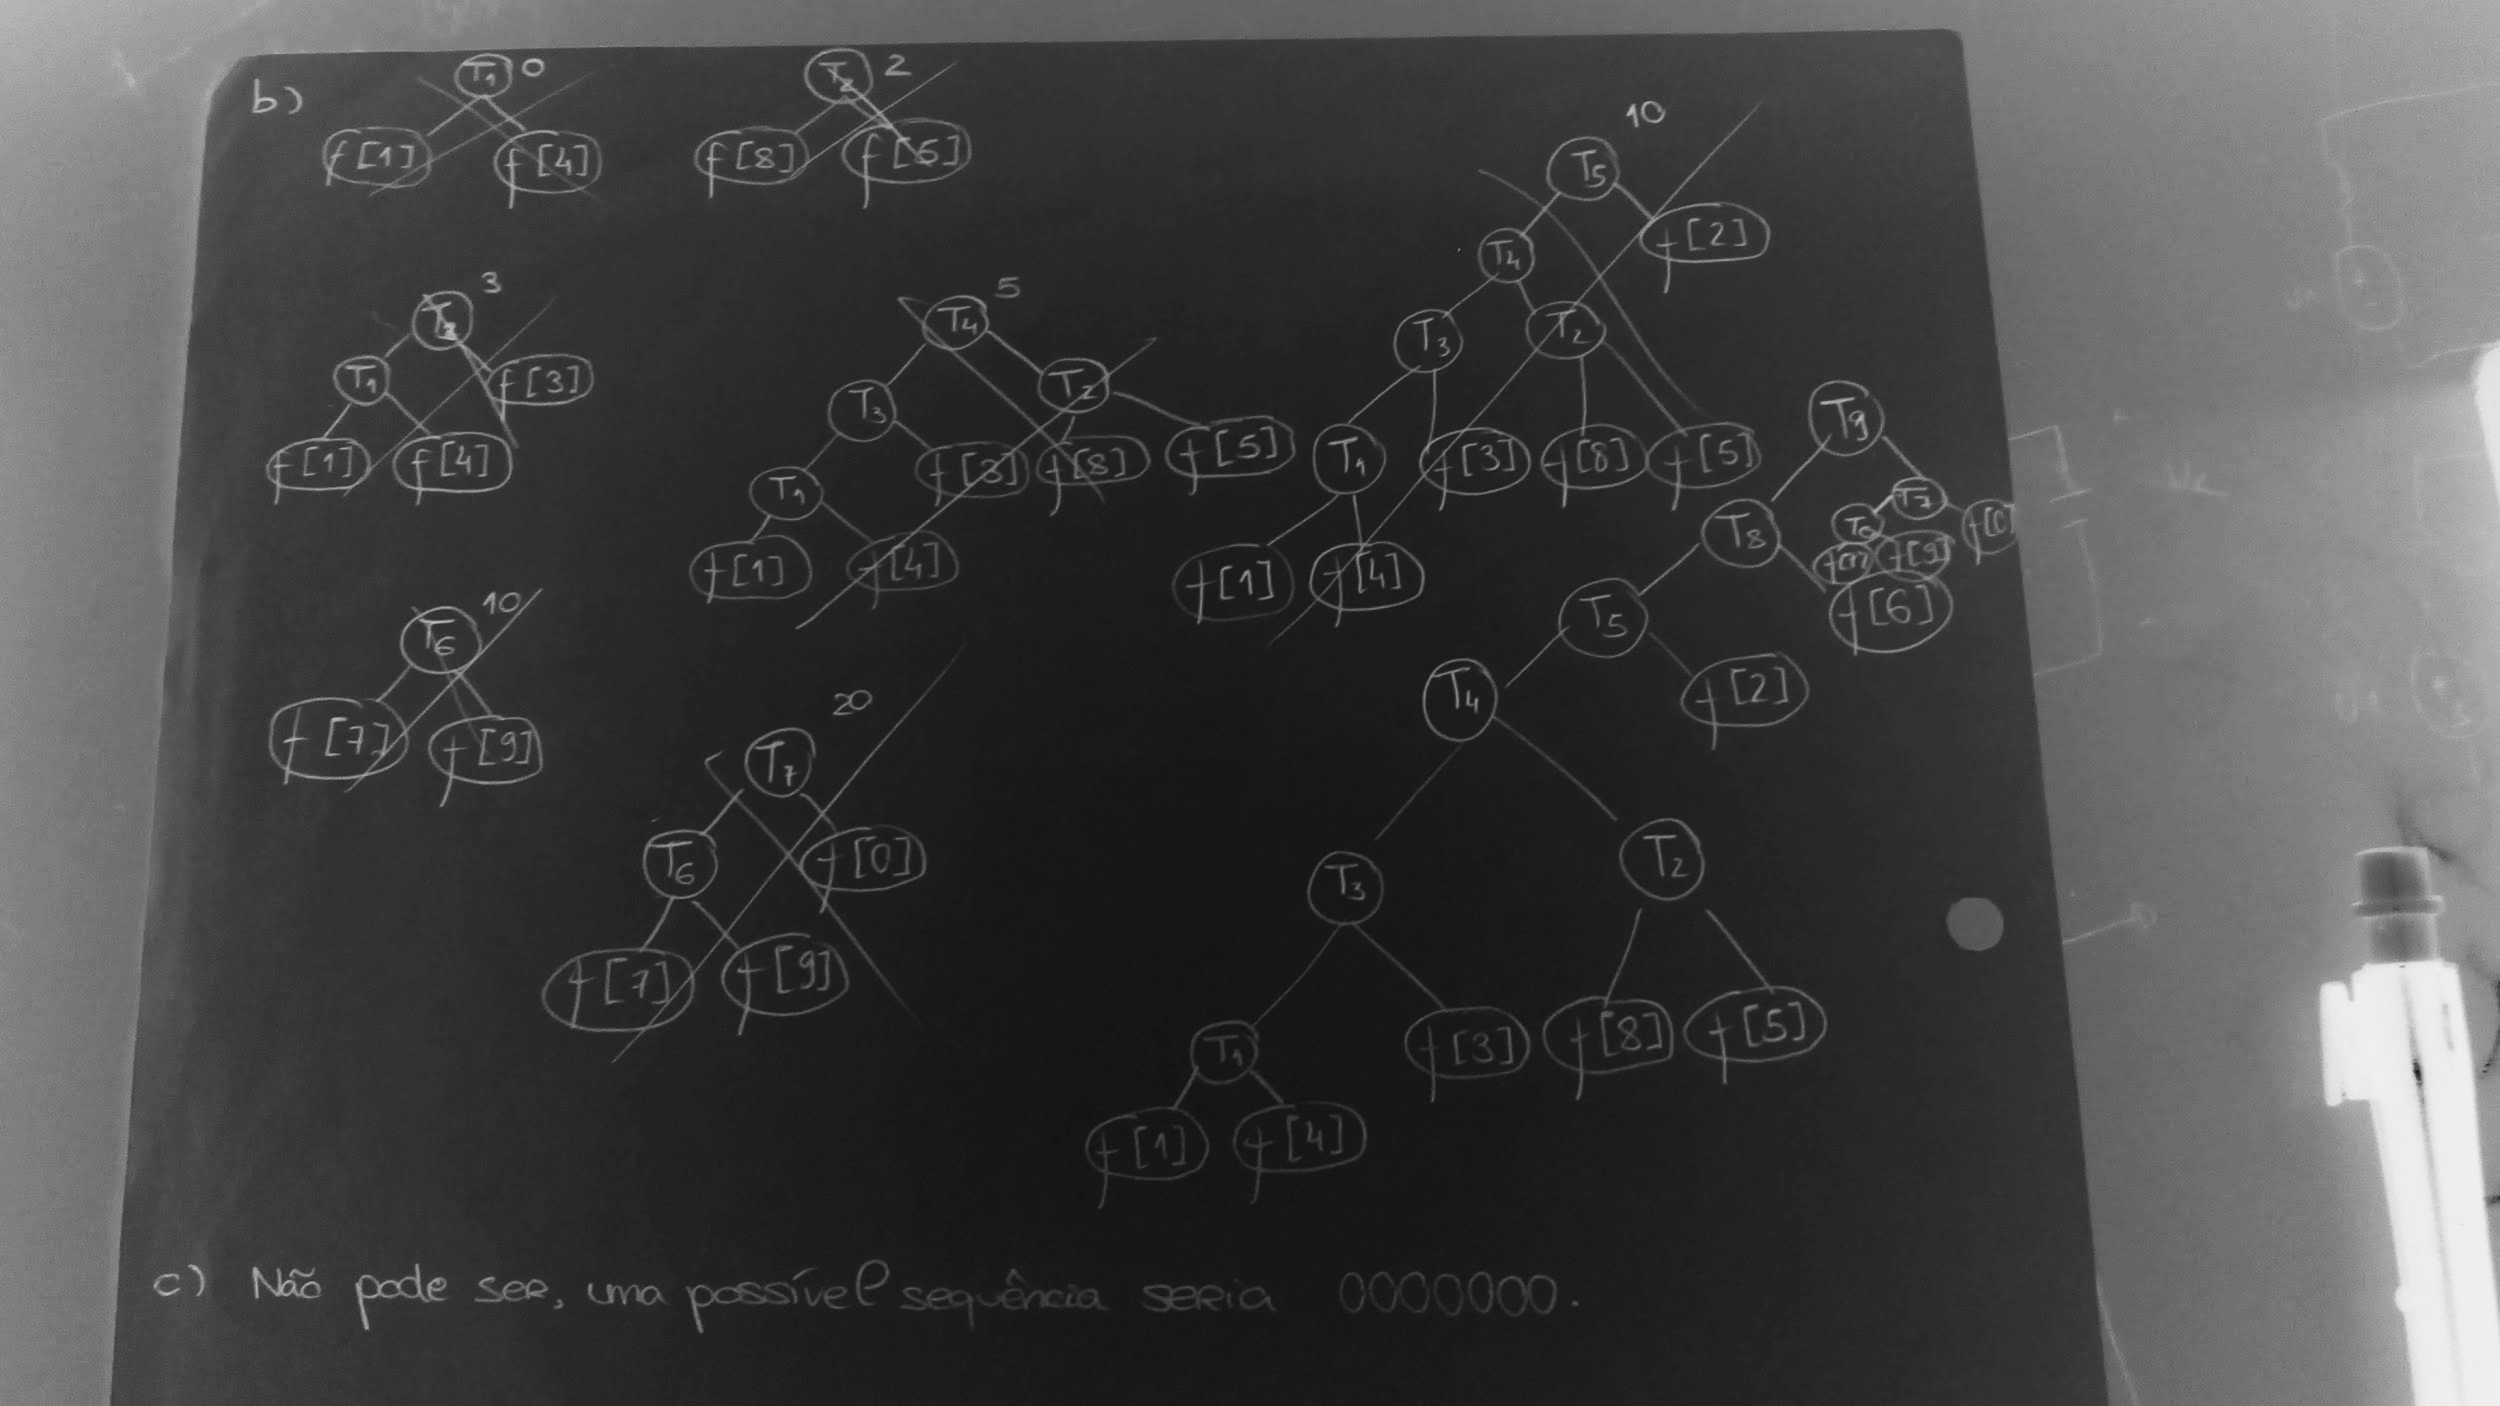 b)
T1 0
f[1] f[4]
T2 2
f[8] f[5]
T3 3
T1 f[3]
f[1] f[4]
T4 5
T3 T2
T1 f[3] f[8] f[5]
f[1] f[4]
10
T5
T4 f[2]
T3 T2
T1 f[3] f[8] f[5]
f[1] f[4]
T6 10
f[7] f[9]
20
T7
T6 f[0]
f[7] f[9]
T9
T8 T7
T6 f[0]
f[7] f[9]
T5 f[6]
T4 f[2]
T3 T2
T1 f[3] f[8] f[5]
f[1] f[4]
c) Não pode ser, uma possível sequência seria 0000000.